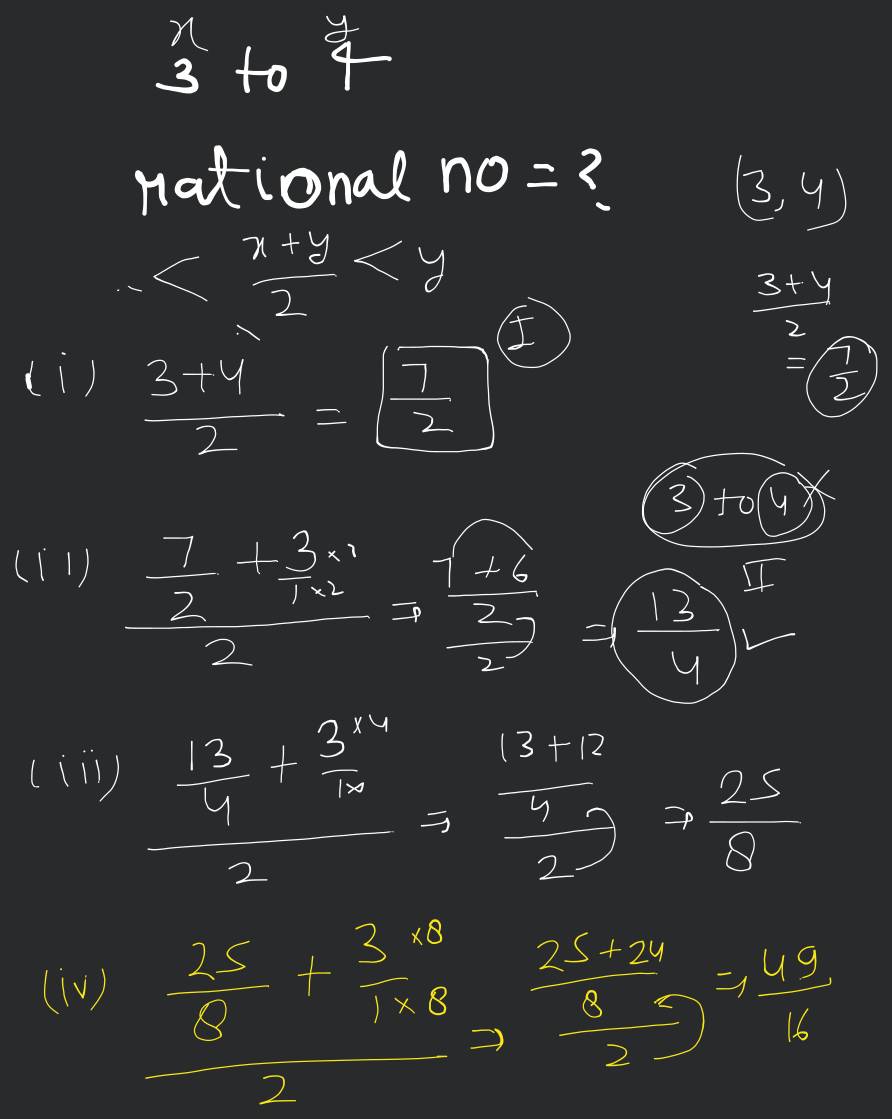 x y
3 to 4
rational no = ?
(3, 4)
< x+y/2 < y
3+4/2
= 7/2
(i) 3+4/2 = 7/2
I
3 to 4 ×
(ii) 7/2 + 3/1×2 /2 ⇒ 7+6/2/2 ⇒ 13/4 ✓
II
(iii) 13/4 + 3×4/1× /2 ⇒ 13+12/4/2 ⇒ 25/8
(iv) 25/8 + 3×8/1×8 /2 ⇒ 25+24/8/2 ⇒ 49/16